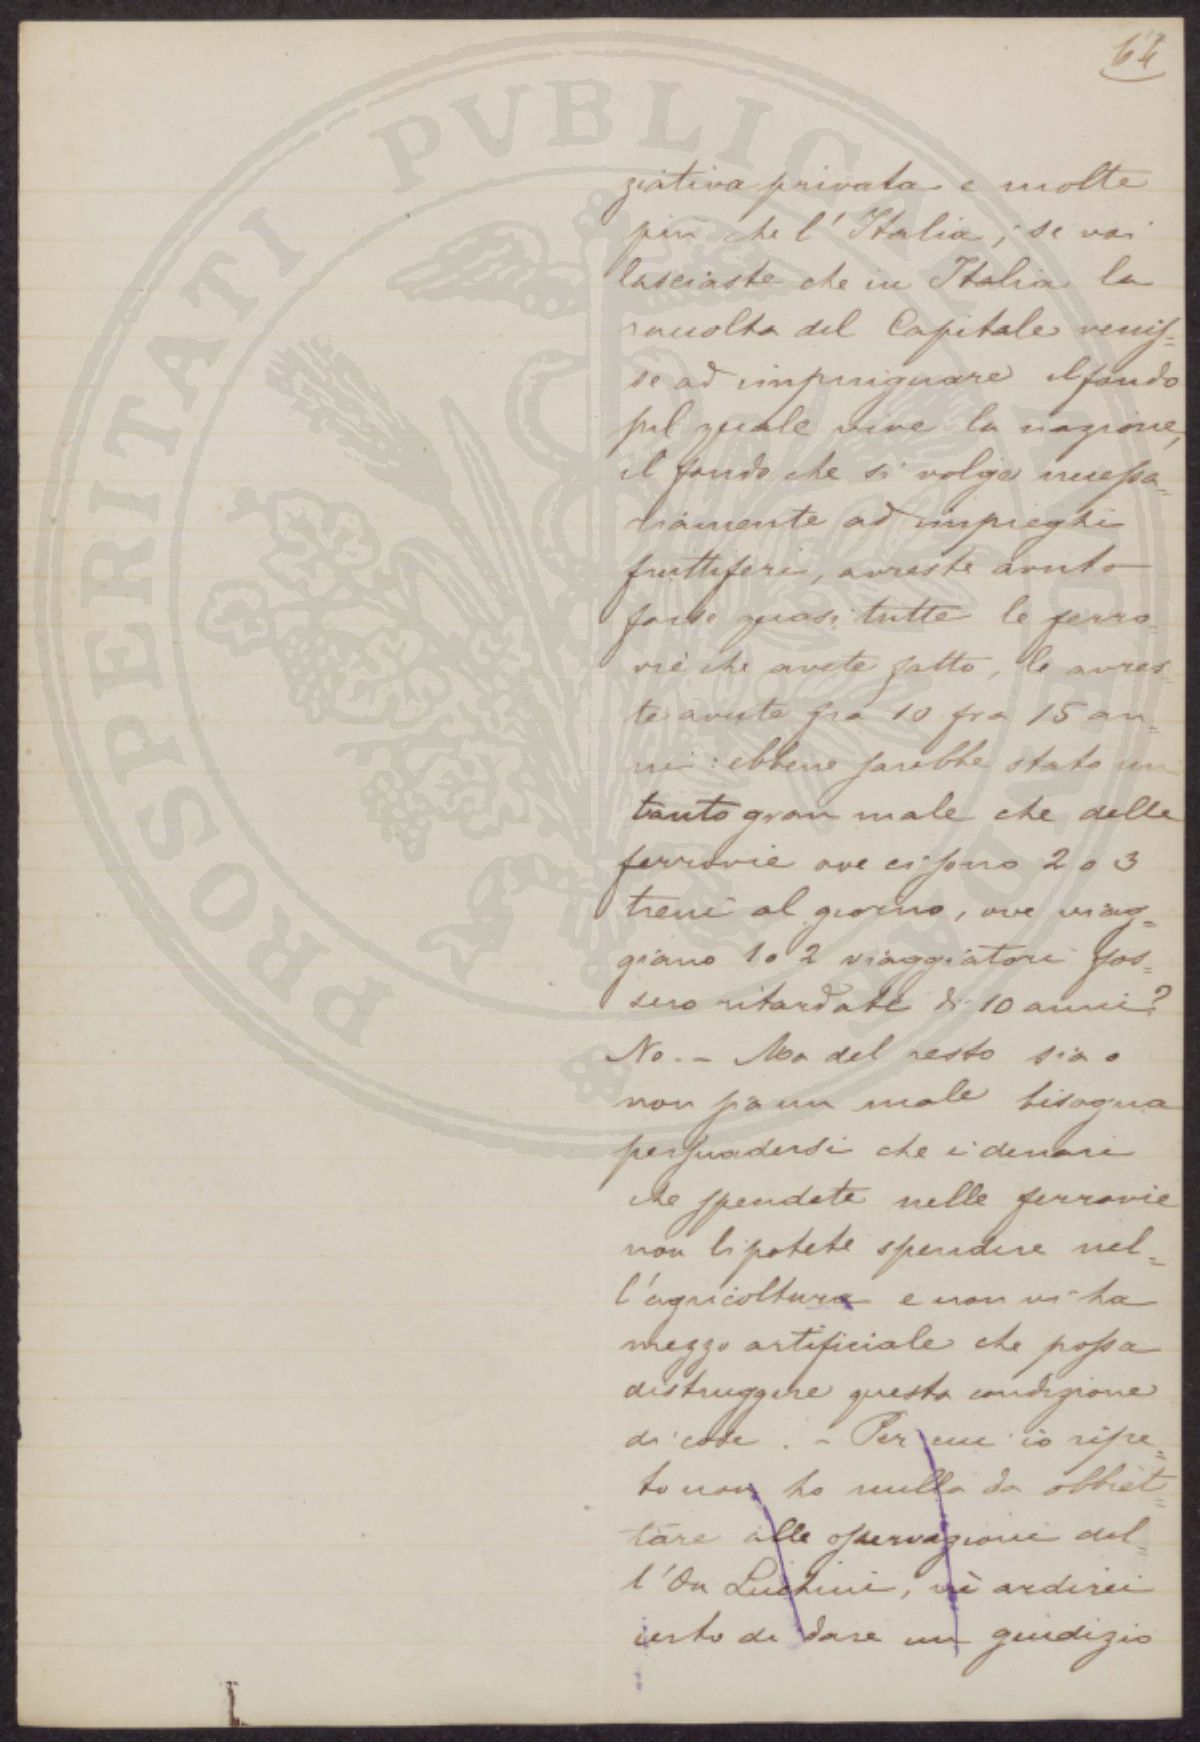 64
ziativa privata e molte
più che l'Italia; se voi
lasciaste che in Italia la
raccolta del Capitale venis=
se ad impinguare il fondo
pel quale vive la nazione,
il fondo che si volge necessa=
riamente ad impieghi
fruttiferi, avreste avuto
forse quasi tutte le ferro=
vie che avete fatto, le avres=
te avute fra 10 fra 15 an=
ni: ebbene sarebbe stato un
tanto gran male che delle
ferrovie ove ci sono 2 o 3
treni al giorno, ove viag=
giano 1 o 2 viaggiatori fos=
sero ritardate di 10 anni?
No. – Ma del resto sia o
non sia un male bisogna
persuadersi che i denari
che spendete nelle ferrovie
non li potete spendere nel=
l'agricoltura e non vi ha
mezzo artificiale che possa
distruggere questa condizione
di cose. – Per cui io ripe=
to non ho nulla da obbiet=
tare alle osservazioni del=
l'On Luchini, nè ardirei
certo di dare un giudizio
PROSPERITATI PVBLICAE AVGENDAE